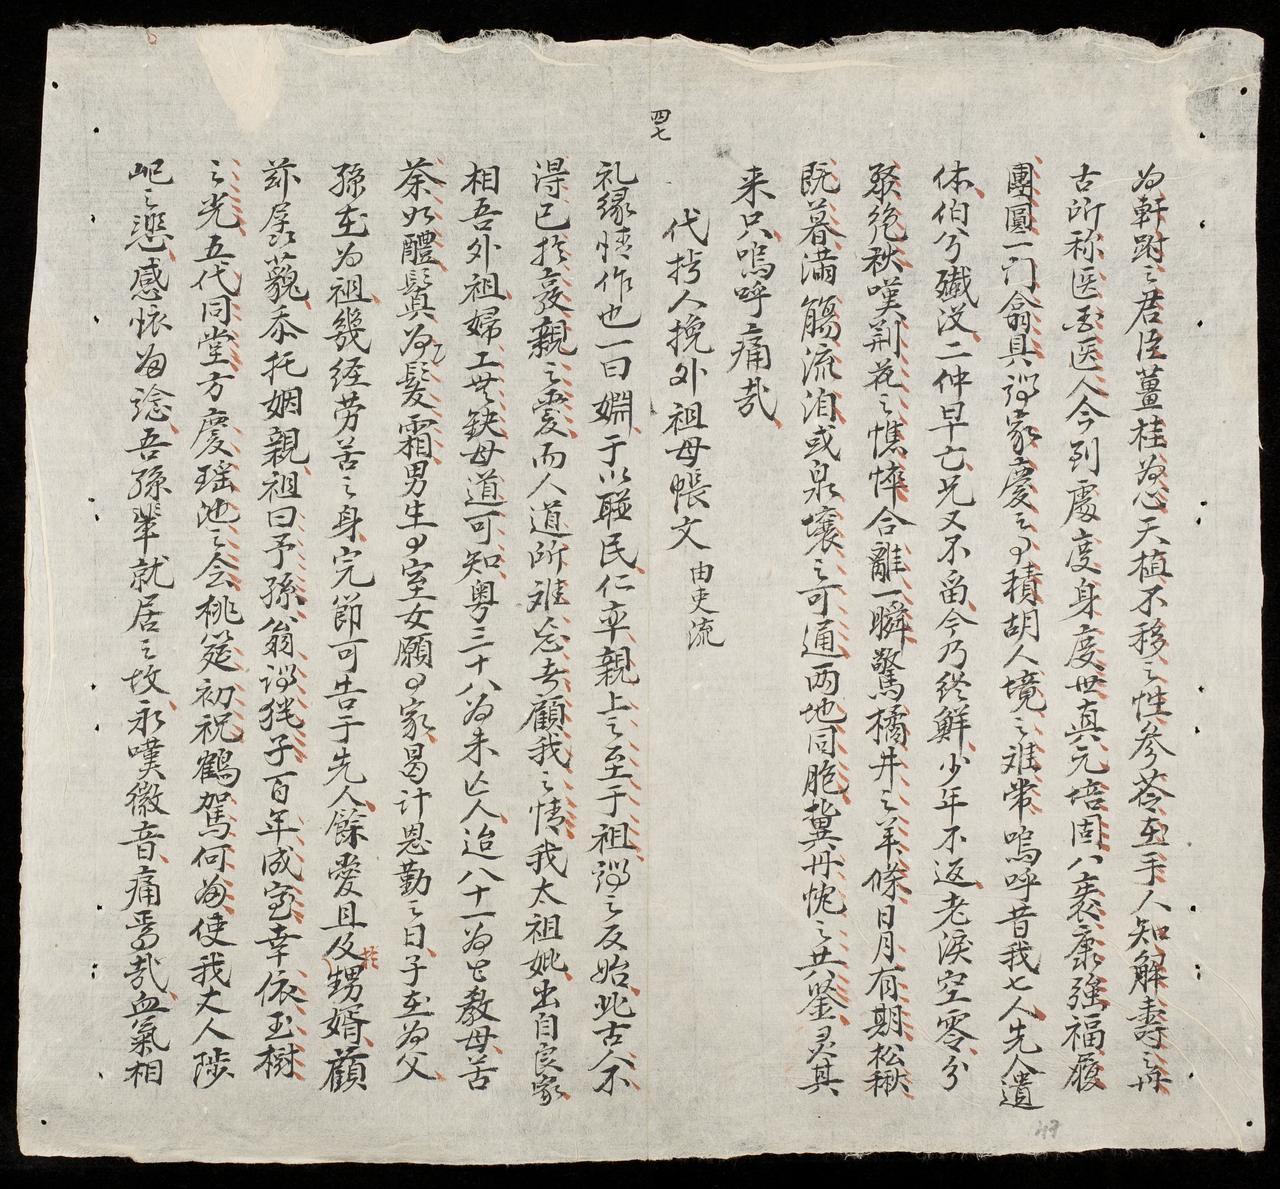 为軒跗之君臣薑桂為心天植不移之性参苓在手人知解壽之丹
古所称医玉医人今到處度身度世真元培固八袠康強福履
團圓一门翕具谓家慶之積胡人境之难常嗚呼昔我七人先人遺
体伯兮殲没二仲早亡兄又不留今乃终鮮少年不返老淚空零分
聚絶秋嘆荆花之憔悴合離一瞬驚橘井之条日月有期松楸
既暮潚觴流洎或泉壤之可通两地同胞冀丹忱之共鑒灵其
来只嗚呼痛哉
四七
代拷人挽外祖母帳文 由吏流
礼缘情作也一曰婣于以聮民仁率親上之至于祖谓之反始此古人不
得已推爱親之愛而人道所难忘者顧我之情我太祖妣出自良家
相吾外祖婦工無缺母道可知粤三十八为未亡人迨八十一为皆教母苦
荼如醴鬒为髮霜男生室女願家曷计恩勤之日子在为父
孫在为祖幾经劳苦之身完節可告于先人餘愛且及於甥婿顧
兹孱藐忝托姻親祖曰予孫翁谓犹子百年成室幸依玉樹
之光五代同堂方慶瑶池之会桃筵初祝鶴駕何為使我丈人陟
屺之悲感懐為谂吾孫輩就居之故永嘆徽音痛焉哉血氣相